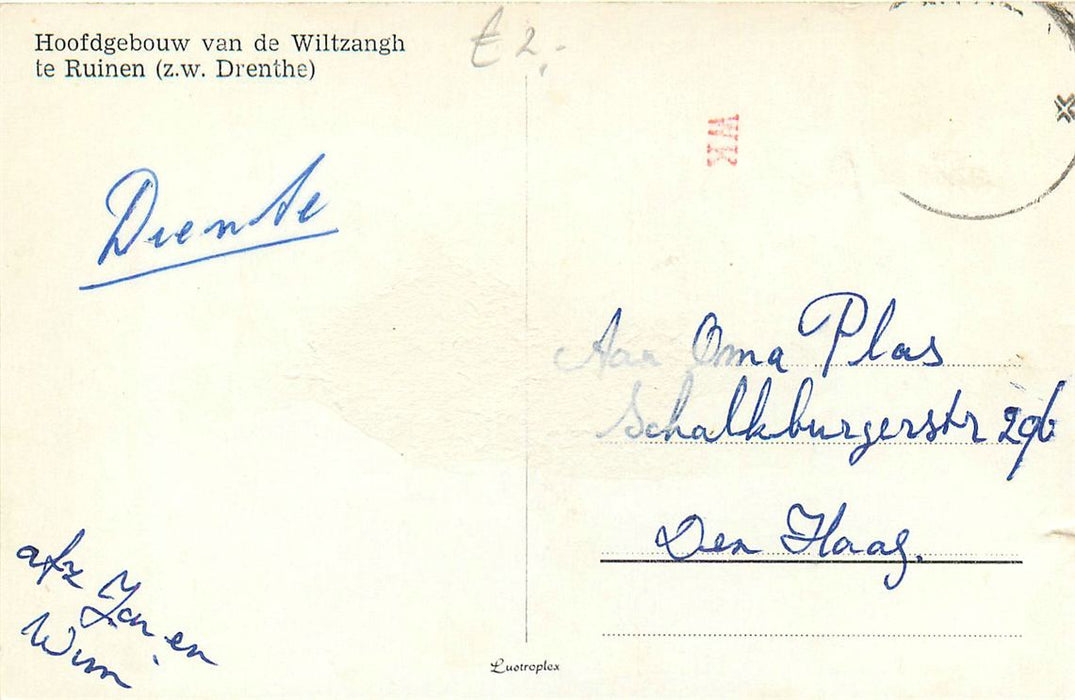 Hoofdgebouw van de Wiltzangh
te Ruinen (z.w. Drenthe)
£ 2,-
WK
Drente
Aan Oma Plas
Schalkburgerstr 296
Den Haag.
afz Jan en
Wim
Lustroplex